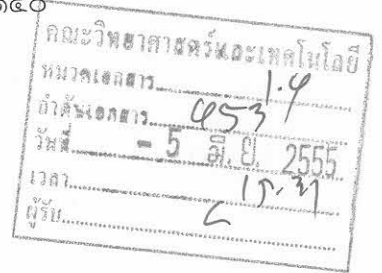 ๑๔๐
คณะวิทยาศาสตร์และเทคโนโลยี
หมวดเอกสาร 1.4
ลำดับเอกสาร 453
วันที่ - 5 มี.ย. 2555
เวลา 15.31
ผู้รับ